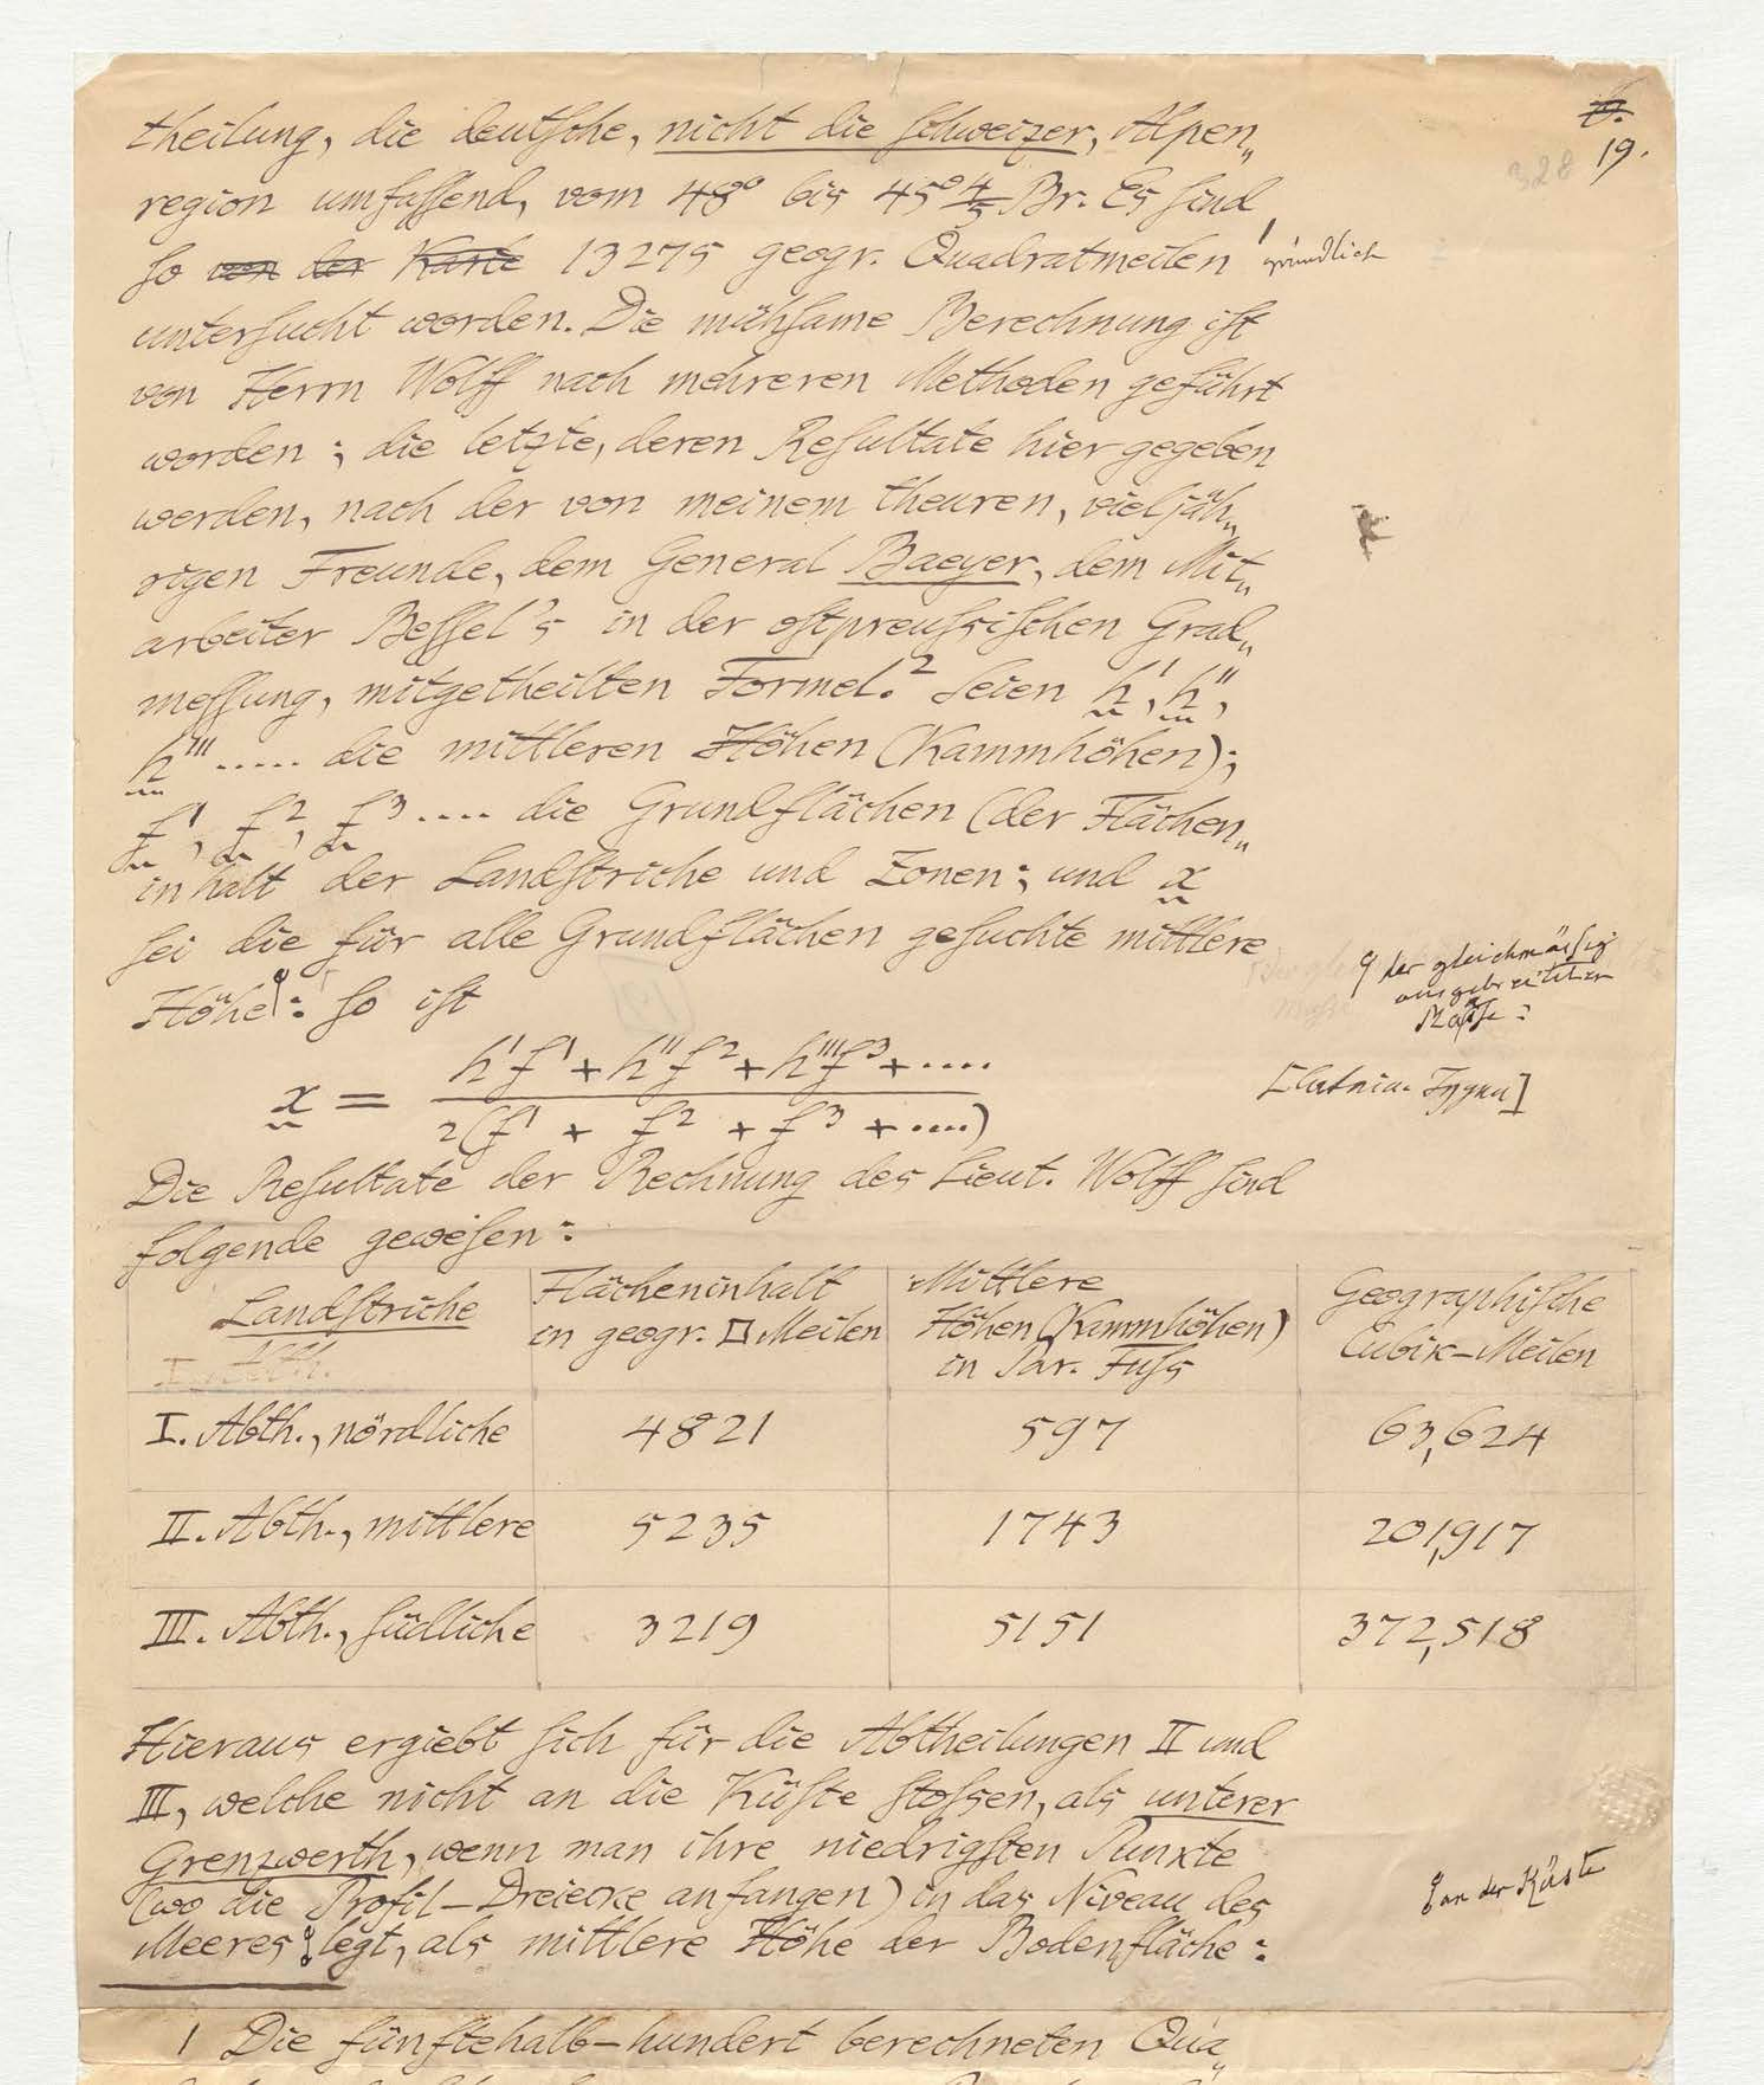 6.
19.
328
theilung, die deutſche, nicht die ſchweizer, Alpen„
region umfaſſend, vom 48° bis 45°4/5 Br. Es ſind
ſo von der Karte 13275 geogr. Quadratmeilen ¹ gründlich
unterſucht worden. Die mühſame Berechnung iſt
von Herrn Wolff nach mehreren Methoden geführt
worden; die letzte, deren Reſultate hier gegeben
werden, nach der von meinem theuren, vieljäh„
rigen Freunde, dem General Baeyer, dem Mit„
arbeiter Beſſel's in der oſtpreuſsiſchen Grad„
meſſung, mitgetheilten Formel.² Seien h', h'',
h''' ..... die mittleren Höhen (Kammhöhen);
f¹, f², f³ .... die Grundflächen (der Flächen„
inhalt der Landſtriche und Zonen; und x
ſei die für alle Grundflächen geſuchte mittlere
Höhe: ſo iſt
der gleichmäſsig
ausgebreiteten
Maſſe:
x = h'f¹ + h''f² + h'''f³ + .... / 2(f¹ + f² + f³ + ....)
Die Reſultate der Rechnung des Lieut. Wolff ſind
folgende geweſen:
Landſtriche | Flächeninhalt in geogr. □ Meilen | Mittlere Höhen (Kammhöhen) in Par. Fuſs | Geographiſche Cubik-Meilen
I. Abth., nördliche | 4821 | 597 | 63,624
II. Abth., mittlere | 5235 | 1743 | 201,917
III. Abth., ſüdliche | 3219 | 5151 | 372,518
Hieraus ergiebt ſich für die Abtheilungen II und
III, welche nicht an die Küſte ſtoſsen, als unterer
Grenzwerth, wenn man ihre niedrigſten Punkte
(wo die Profil-Dreiecke anfangen) in das Niveau des
Meeres legt, als mittlere Höhe der Bodenfläche:
an der Küste
1 Die fünftehalb-hundert berechneten Qua„